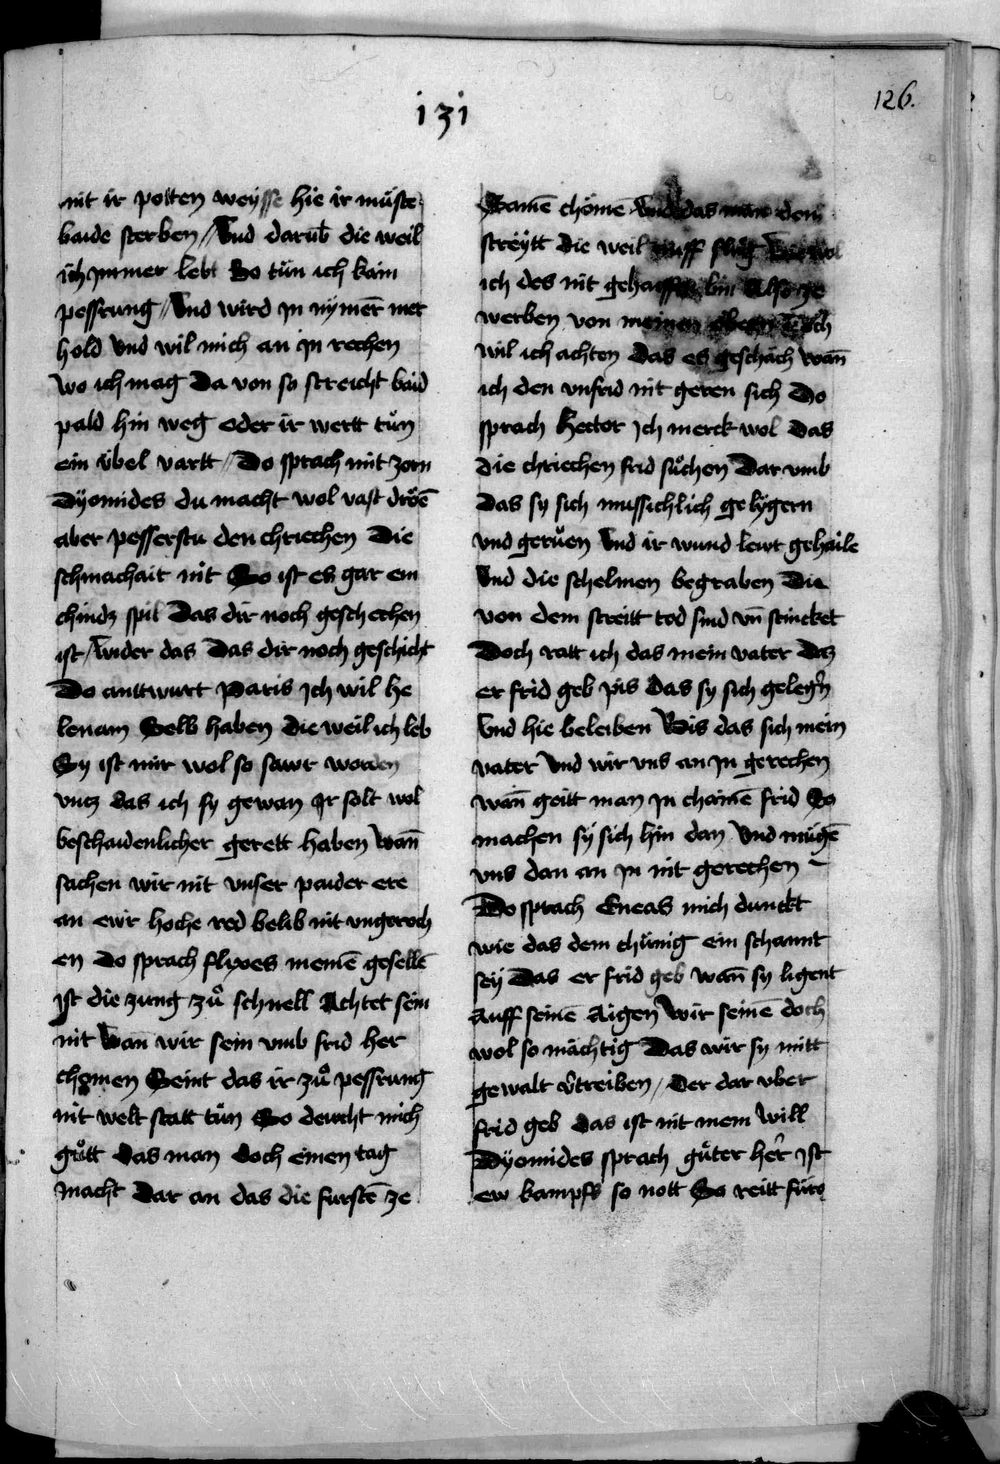 131
126.
nit ir potten weysse hie ir müste
baide sterben // Vnd darub̄ die weil
ich ymmer lebt So tün ich kain
pessrung // Vnd wird jn nymer̄ mer
hold Vnd wil mich an jn rechen
wo ich mag Da von so streicht baid
pald hin weg oder ir wertt tün
ein vbel vartt // Do sprach mit zorn
Dyomides du macht wol vast dröē
aber pesserstu den chriechen Die
schmachait nit So ist es gar ein
chindz spil Das dir noch geschechen
ist / wider das Das dir noch geschicht
Do anttwurt Paris Ich wil he
lenam Selb haben die weil ich leb
Sy ist mir wol so sawr worden
vncz das ich sy gewan Ir solt wol
beschaidenlicher gerett haben wan̄
sachen wir nit vnser paider ere
an ewr hoche red belib nit vngeroch
en Do sprach flixes meinē geselle
Ist die zung zuͦ schnell Achtet sein
nit Wan̄ wir sein vmb frid her
chomen Seint das ir zuͦ pessrung
nit welt statt tün So deucht mich
guͦtt das man doch einen tag
macht Dar an das die furstē ze
Samē chömē Vnd das man dem
streytt die weil auff
ich des nit bin Also ze
werben von meinen
wil ich achten das es geschäch wan̄
ich den vnfrid nit geren sich Do
sprach Hector Ich merck wol das
die chriechen frid suͦchen Darvmb
das sy sich mussichlich gelygern
vnd geruͦen Vnd ir wund lewt gehaile
Vnd die schelmen begraben Die
von dem streitt tod sind vn̄ stincket
Doch ratt ich das mein vater daz
er frid geb pis das sy sich gelegr̄n
Vnd hie beleiben Bis das sich mein
vater Vnd wir vns an jn gerechen
wan̄ geitt man jn chainē frid So
machen sy sich hin dan Vnd mügē
vns dan an jn nit gerechen ~
Do sprach Eneas mich dunckt
wie das dem chünig ein schannt
sey Das er frid geb wan̄ sy ligent
Auff seinē Aigen Wir seinē doch
wol so mächtig Das wir sy mitt
gewalt v̄treiben / der dar vber
frid geb das ist nit mein will
Dyomides sprach guͦter her̄ ist
ew kampfs so nott So reitt füro